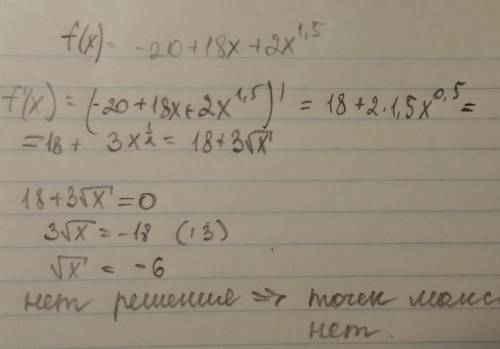 f(x) = -20+18x+2x^1,5
f'(x) = (-20+18x+2x^1,5)' = 18+2·1,5x^0,5 =
= 18 + 3x^½ = 18+3√x
18+3√x = 0
3√x = -18 (:3)
√x = -6
нет решения => точек макс
нет.